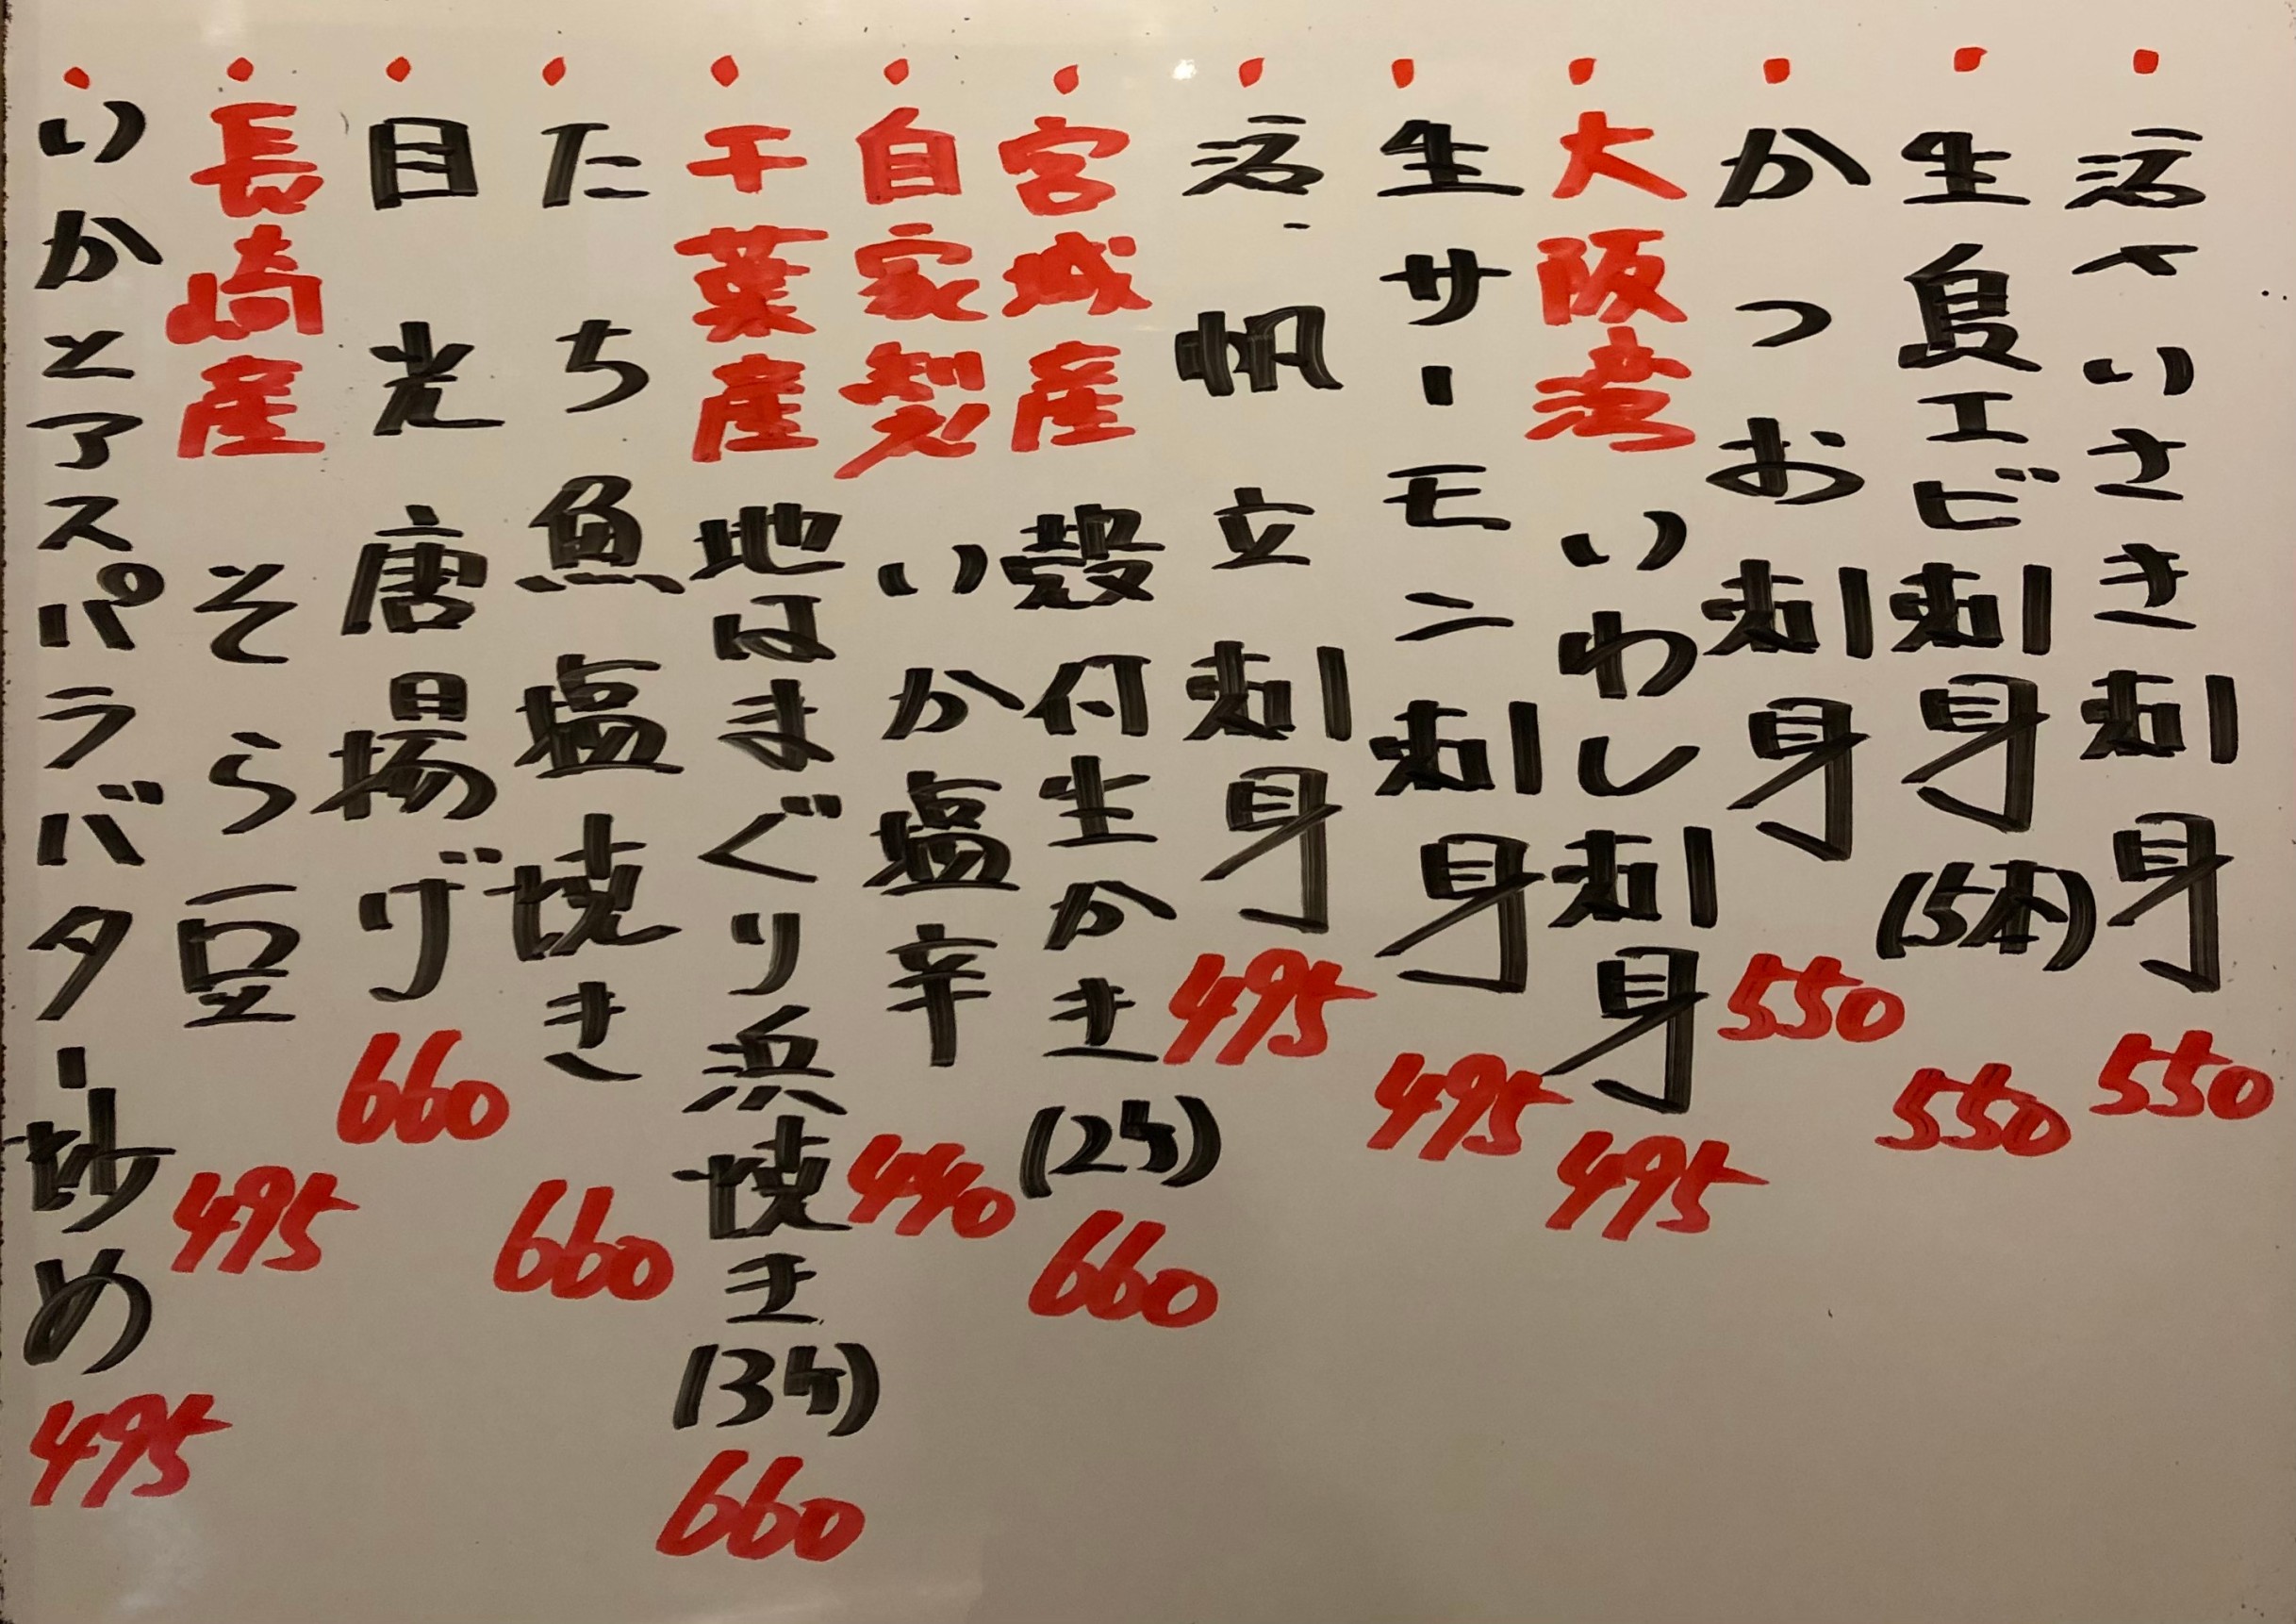 活〆いさき刺身 550
生島エビ刺身(5本) 550
かつお刺身 550
大阪湾いわし刺身 495
生サーモン刺身 495
活帆立刺身 495
宮城産殻付生かき(2ケ) 660
自家製いか塩辛 440
千葉産地はまぐり浜焼き(3ケ) 660
たち魚塩焼き 660
目光唐揚げ 660
長崎産そら豆 495
いかとアスパラバター炒め 495